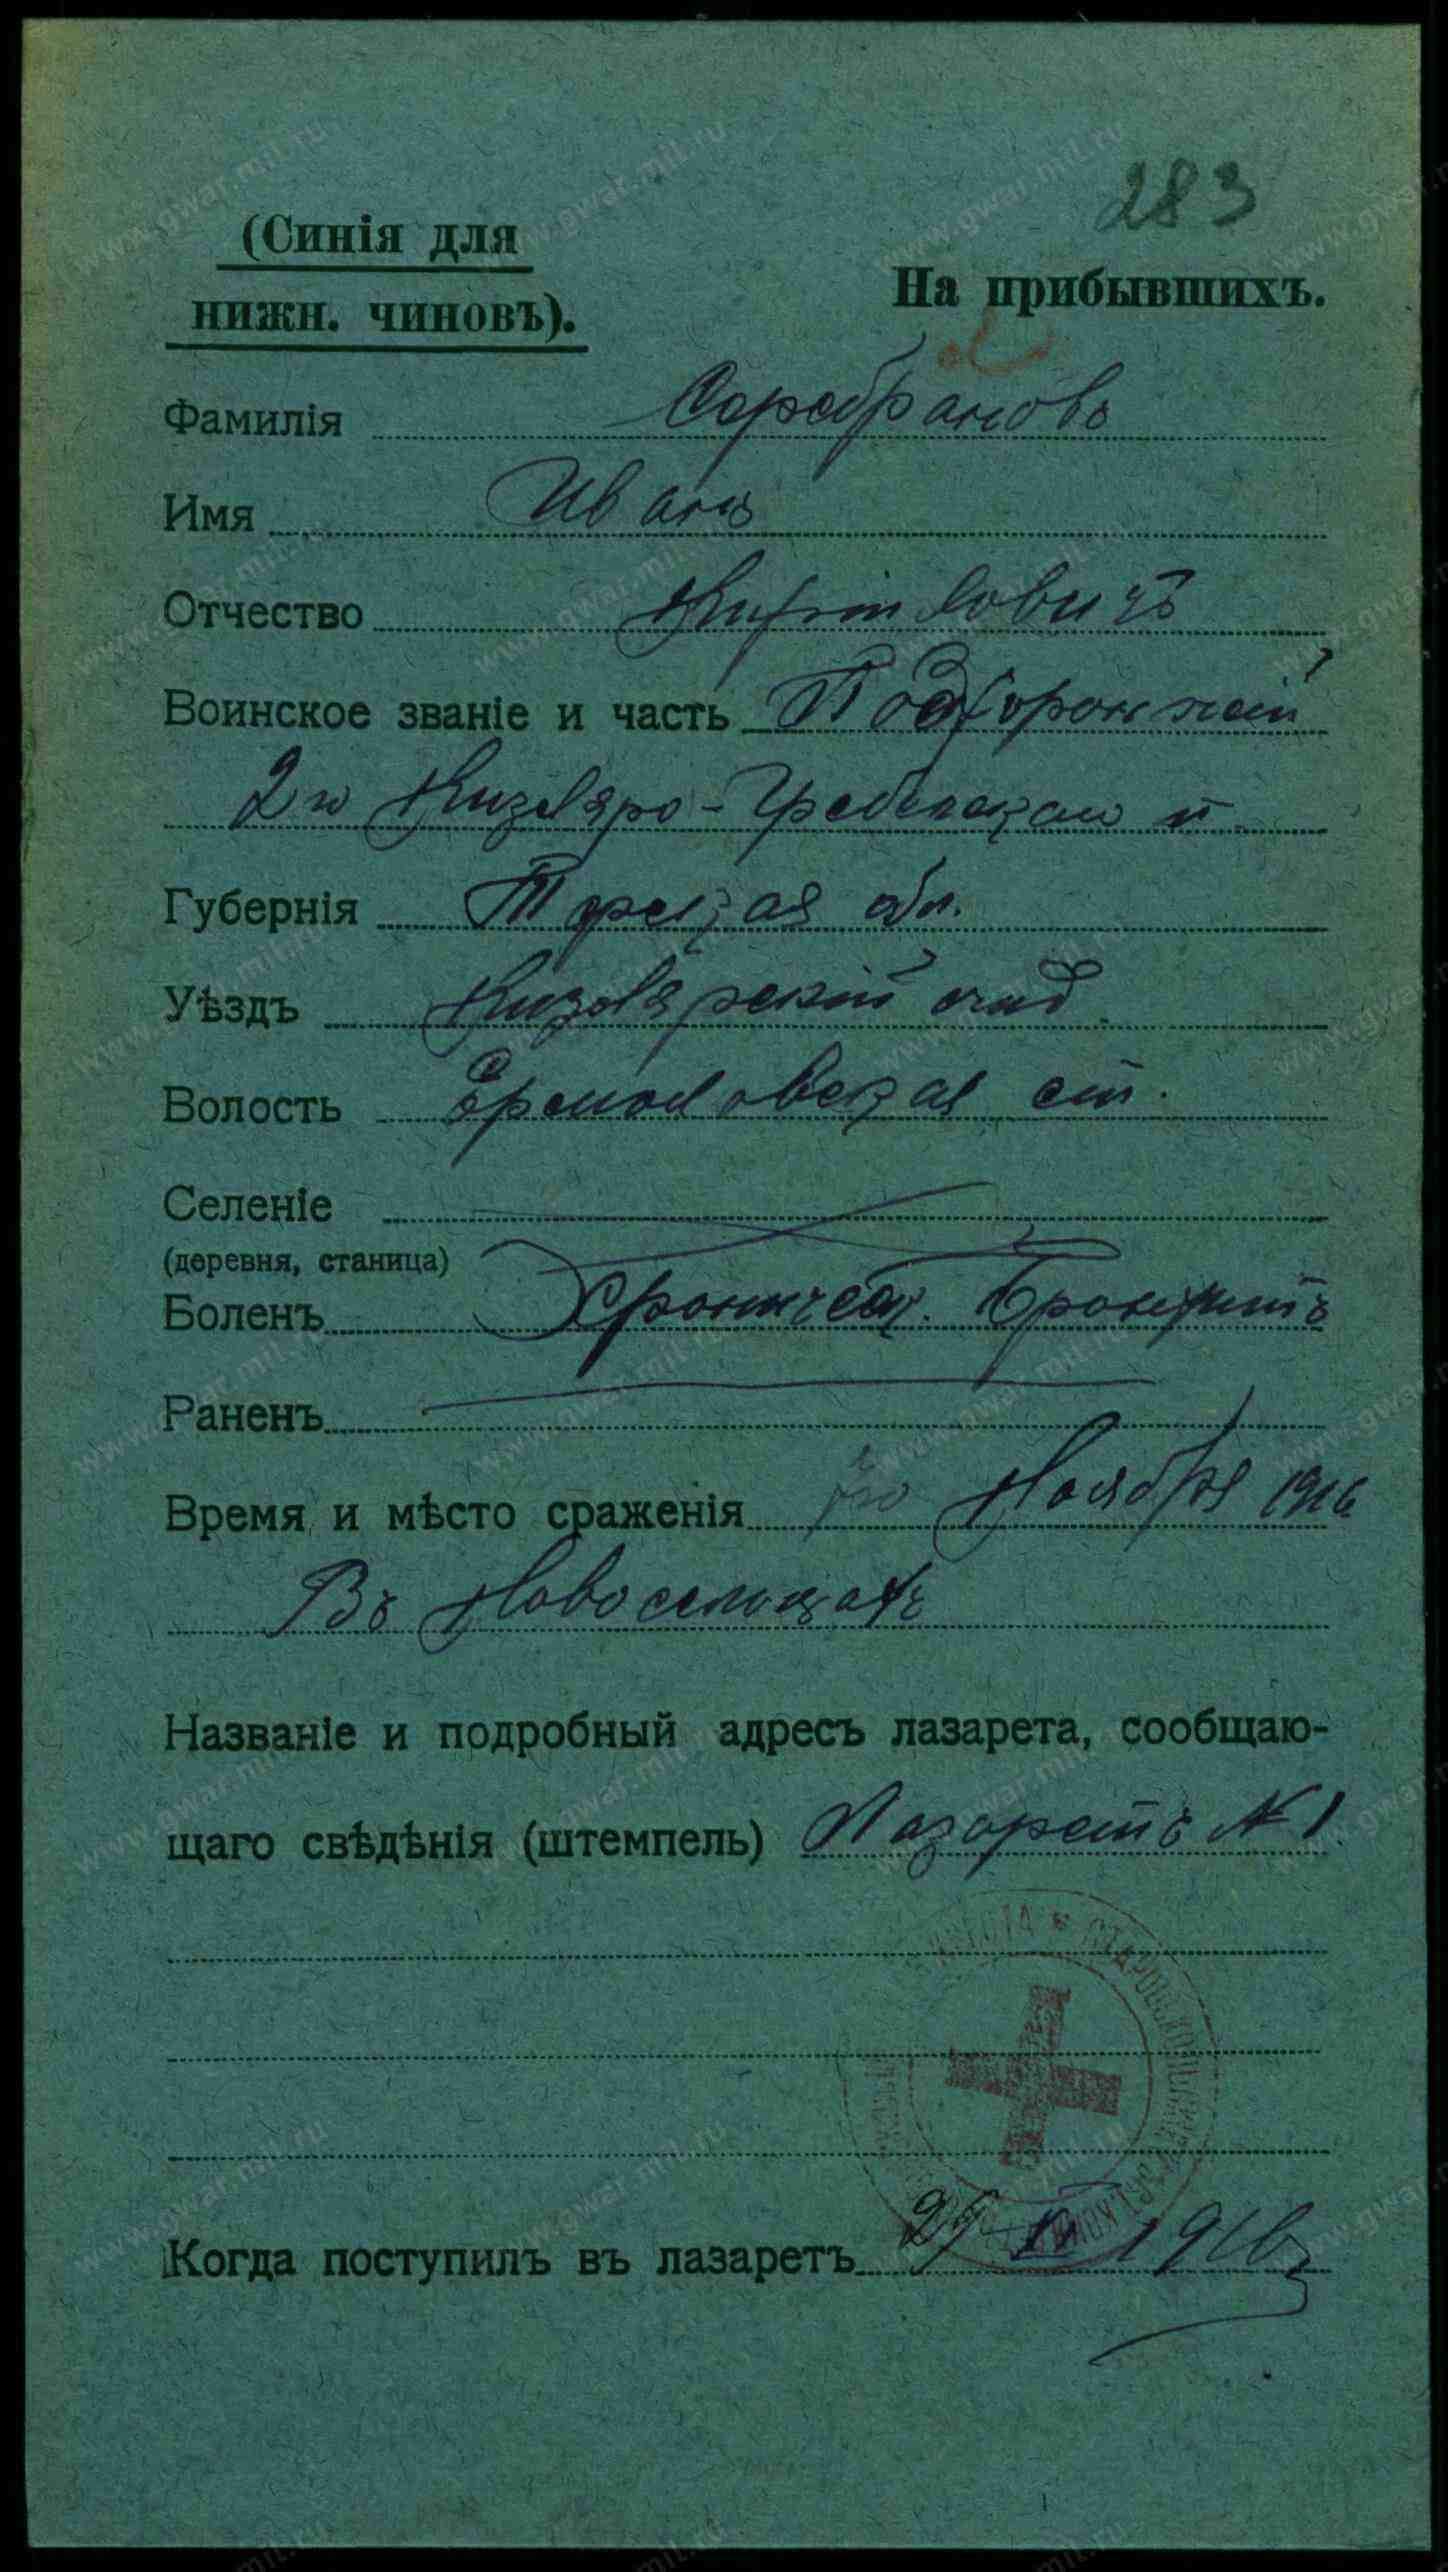 283
(Синія для
нижн. чиновъ).
На прибывшихъ.
Фамилія Серебраковъ
Имя Иванъ
Отчество Кириловичъ
Воинское званіе и часть Подхорунжій
2го Кизляро-Гребенскаго п.
Губернія Терская обл.
Уѣздъ Кизлярскій отд.
Волость Ермоловская ст.
Селеніе
(деревня, станица)
Боленъ Хроническ. Бронхитъ
Раненъ
Время и мѣсто сраженія Ноября 1916
Въ Новоселицахъ
Названіе и подробный адресъ лазарета, сообщаю-
щаго свѣдѣнія (штемпель) Лазаретъ № 1
Когда поступилъ въ лазаретъ 29 XI 1916